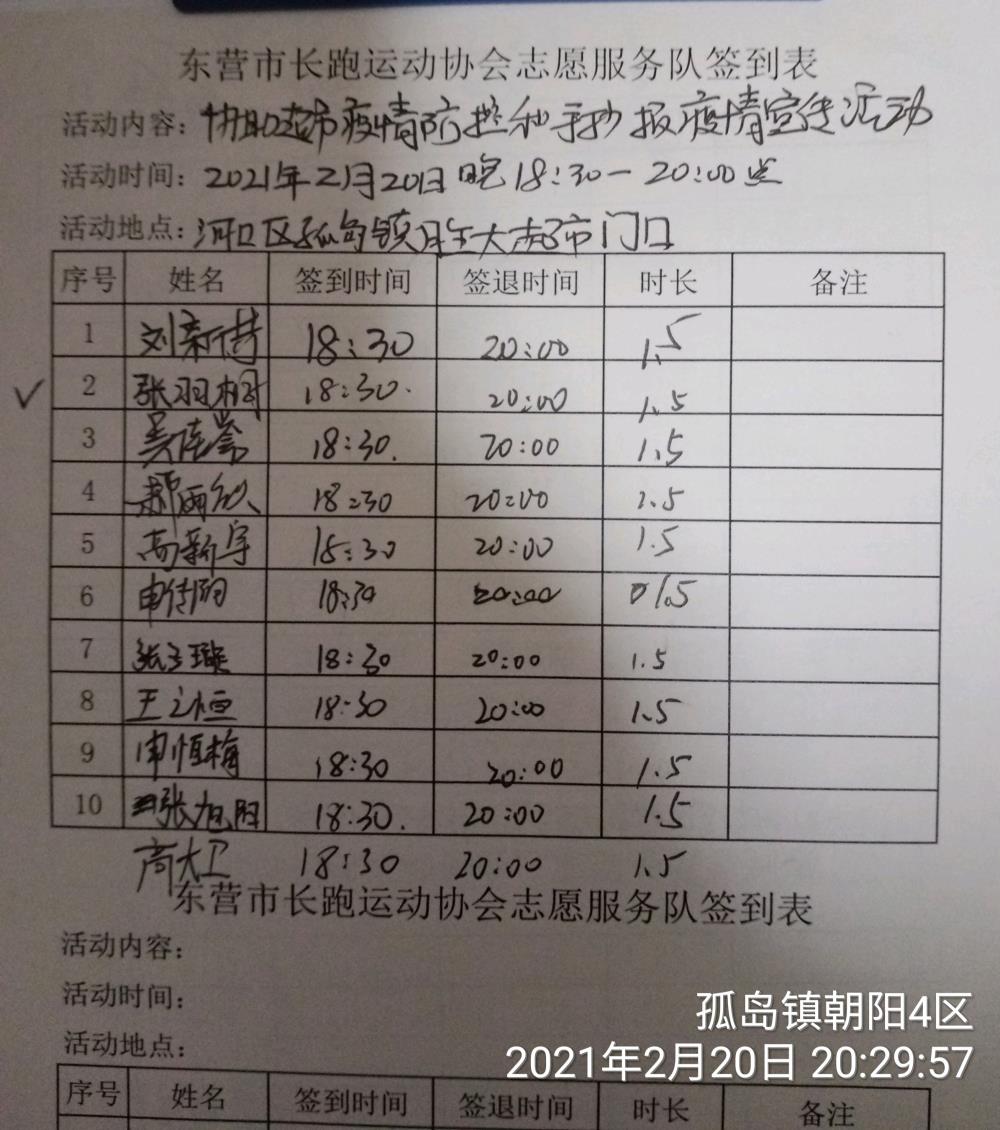 东营市长跑运动协会志愿服务队签到表
活动内容：协助超市疫情防控和手抄报疫情宣传活动
活动时间：2021年2月20日晚18:30-20:00点
活动地点：河口区孤岛镇胜大超市门口
序号 姓名 签到时间 签退时间 时长 备注
1 刘新 18:30 20:00 1.5
2 张羽桐 18:30. 20:00 1.5
3 吴佳 18:30. 20:00 1.5
4 郝雨欣 18:30 20:00 1.5
5 高新宇 18:30 20:00 1.5
6 申 18:30 20:00 1.5
7 张子璇 18:30 20:00 1.5
8 王之恒 18:30 20:00 1.5
9 申恒梅 18:30 20:00 1.5
10 张旭阳 18:30. 20:00 1.5
高大卫 18:30 20:00 1.5
东营市长跑运动协会志愿服务队签到表
活动内容：
活动时间：
活动地点：
序号 姓名 签到时间 签退时间 时长 备注
孤岛镇朝阳4区
2021年2月20日 20:29:57